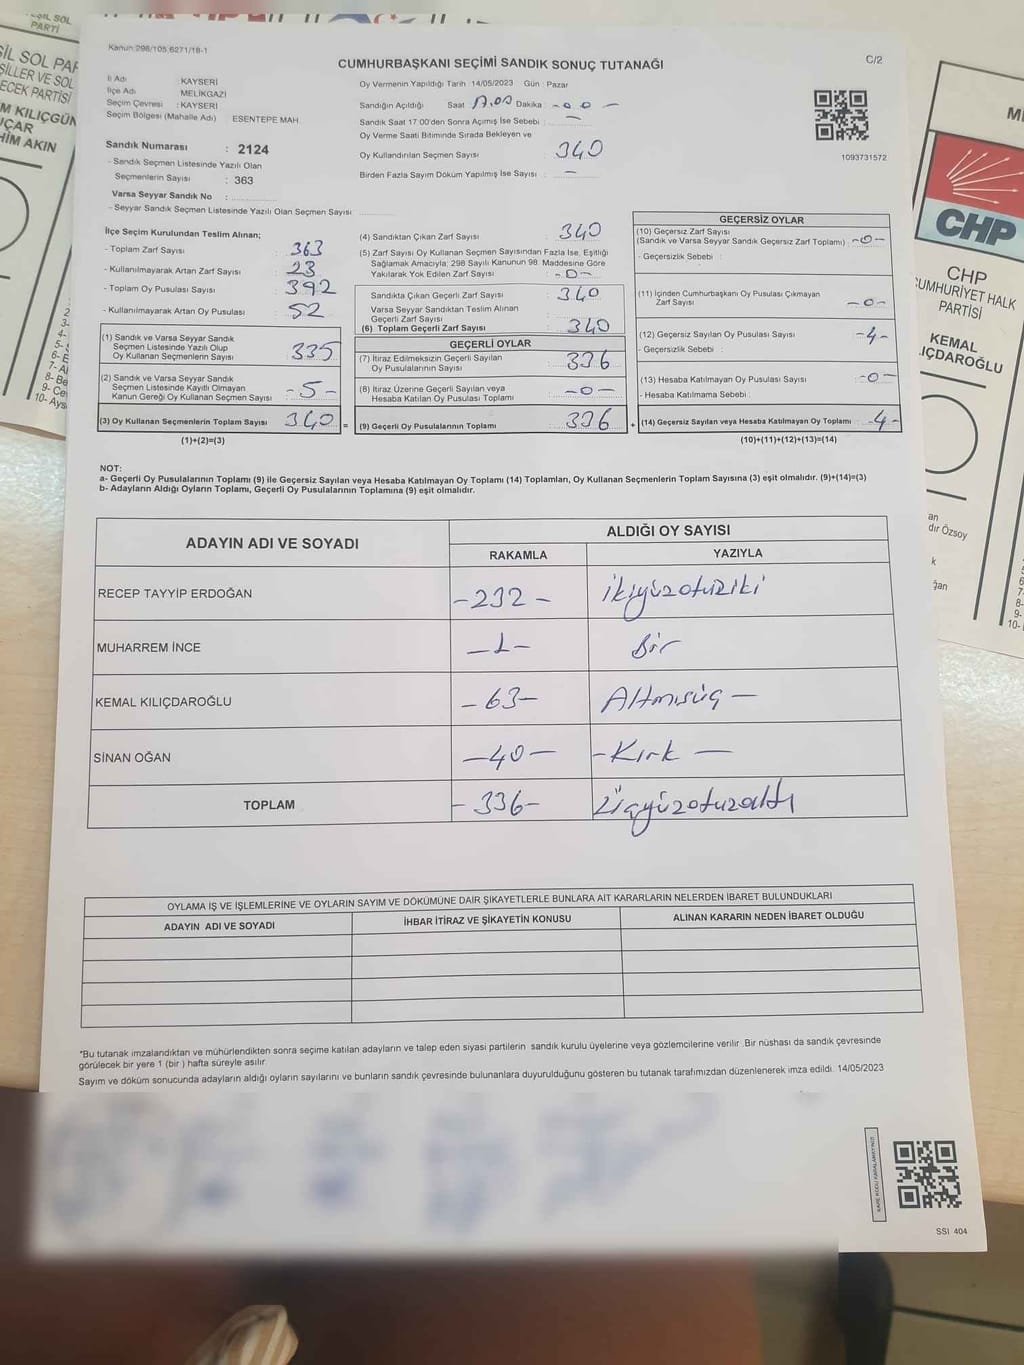 YEŞİL SOL
PARTİ
CHP
CHP
CUMHURİYET HALK
PARTİSİ
KEMAL
KILIÇDAROĞLU
Kanun:298/105,6271/18-1
CUMHURBAŞKANI SEÇİMİ SANDIK SONUÇ TUTANAĞI
C/2
İl Adı : KAYSERİ
İlçe Adı MELİKGAZİ
Seçim Çevresi : KAYSERİ
Seçim Bölgesi (Mahalle Adı) ESENTEPE MAH.
Oy Vermenin Yapıldığı Tarih 14/05/2023 Gün : Pazar
Sandığın Açıldığı Saat 17.00 Dakika : -00-
Sandık Saat 17:00'den Sonra Açımış İse Sebebi : —
Oy Verme Saati Bitiminde Sırada Bekleyen ve
Oy Kullandırılan Seçmen Sayısı : 340
Birden Fazla Sayım Döküm Yapılmış İse Sayısı : —
1093731572
Sandık Numarası : 2124
- Sandık Seçmen Listesinde Yazılı Olan
Seçmenlerin Sayısı : 363
Varsa Seyyar Sandık No :
- Seyyar Sandık Seçmen Listesinde Yazılı Olan Seçmen Sayısı
İlçe Seçim Kurulundan Teslim Alınan;
- Toplam Zarf Sayısı : 363
- Kullanılmayarak Artan Zarf Sayısı : 23
- Toplam Oy Pusulası Sayısı : 392
- Kullanılmayarak Artan Oy Pusulası : 52
(1) Sandık ve Varsa Seyyar Sandık
Seçmen Listesinde Yazılı Olup
Oy Kullanan Seçmenlerin Sayısı : 335
(2) Sandık ve Varsa Seyyar Sandık
Seçmen Listesinde Kayıtlı Olmayan
Kanun Gereği Oy Kullanan Seçmen Sayısı : -5-
(3) Oy Kullanan Seçmenlerin Toplam Sayısı : 340
(1)+(2)=(3)
(4) Sandıktan Çıkan Zarf Sayısı : 340
(5) Zarf Sayısı Oy Kullanan Seçmen Sayısından Fazla İse, Eşitliği
Sağlamak Amacıyla; 298 Sayılı Kanunun 98. Maddesine Göre
Yakılarak Yok Edilen Zarf Sayısı : -0-
Sandıkta Çıkan Geçerli Zarf Sayısı : 340
Varsa Seyyar Sandıktan Teslim Alınan
Geçerli Zarf Sayısı
(6) Toplam Geçerli Zarf Sayısı : 340
=
GEÇERLİ OYLAR
(7) İtiraz Edilmeksizin Geçerli Sayılan
Oy Pusulasının Sayısı : 336
(8) İtiraz Üzerine Geçerli Sayılan veya
Hesaba Katılan Oy Pusulası Toplamı : -0-
(9) Geçerli Oy Pusulalarının Toplamı : 336
+
GEÇERSİZ OYLAR
(10) Geçersiz Zarf Sayısı
(Sandık ve Varsa Seyyar Sandık Geçersiz Zarf Toplamı) : -0-
- Geçersizlik Sebebi :
(11) İçinden Cumhurbaşkanı Oy Pusulası Çıkmayan
Zarf Sayısı : -0-
(12) Geçersiz Sayılan Oy Pusulası Sayısı : -4-
- Geçersizlik Sebebi :
(13) Hesaba Katılmayan Oy Pusulası Sayısı : -0-
- Hesaba Katılmama Sebebi :
(14) Geçersiz Sayılan veya Hesaba Katılmayan Oy Toplamı : -4-
(10)+(11)+(12)+(13)=(14)
NOT:
a- Geçerli Oy Pusulalarının Toplamı (9) ile Geçersiz Sayılan veya Hesaba Katılmayan Oy Toplamı (14) Toplamları, Oy Kullanan Seçmenlerin Toplam Sayısına (3) eşit olmalıdır. (9)+(14)=(3)
b- Adayların Aldığı Oyların Toplamı, Geçerli Oy Pusulalarının Toplamına (9) eşit olmalıdır.
ADAYIN ADI VE SOYADI ALDIĞI OY SAYISI
RAKAMLA YAZIYLA
RECEP TAYYİP ERDOĞAN -232- ikiyüzotuziki
MUHARREM İNCE -1- Bir
KEMAL KILIÇDAROĞLU -63- Altmışüç —
SİNAN OĞAN -40- -Kırk —
TOPLAM -336- Üçyüzotuzaltı
OYLAMA İŞ VE İŞLEMLERİNE VE OYLARIN SAYIM VE DÖKÜMÜNE DAİR ŞİKAYETLERLE BUNLARA AİT KARARLARIN NELERDEN İBARET BULUNDUKLARI
ADAYIN ADI VE SOYADI İHBAR İTİRAZ VE ŞİKAYETİN KONUSU ALINAN KARARIN NEDEN İBARET OLDUĞU
*Bu tutanak imzalandıktan ve mühürlendikten sonra seçime katılan adayların ve talep eden siyasi partilerin sandık kurulu üyelerine veya gözlemcilerine verilir. Bir nüshası da sandık çevresinde
görülecek bir yere 1 (bir) hafta süreyle asılır.
Sayım ve döküm sonucunda adayların aldığı oyların sayılarını ve bunların sandık çevresinde bulunanlara duyurulduğunu gösteren bu tutanak tarafımızdan düzenlenerek imza edildi. 14/05/2023
KARE KODU KARALAMAYINIZ!
SSI 404